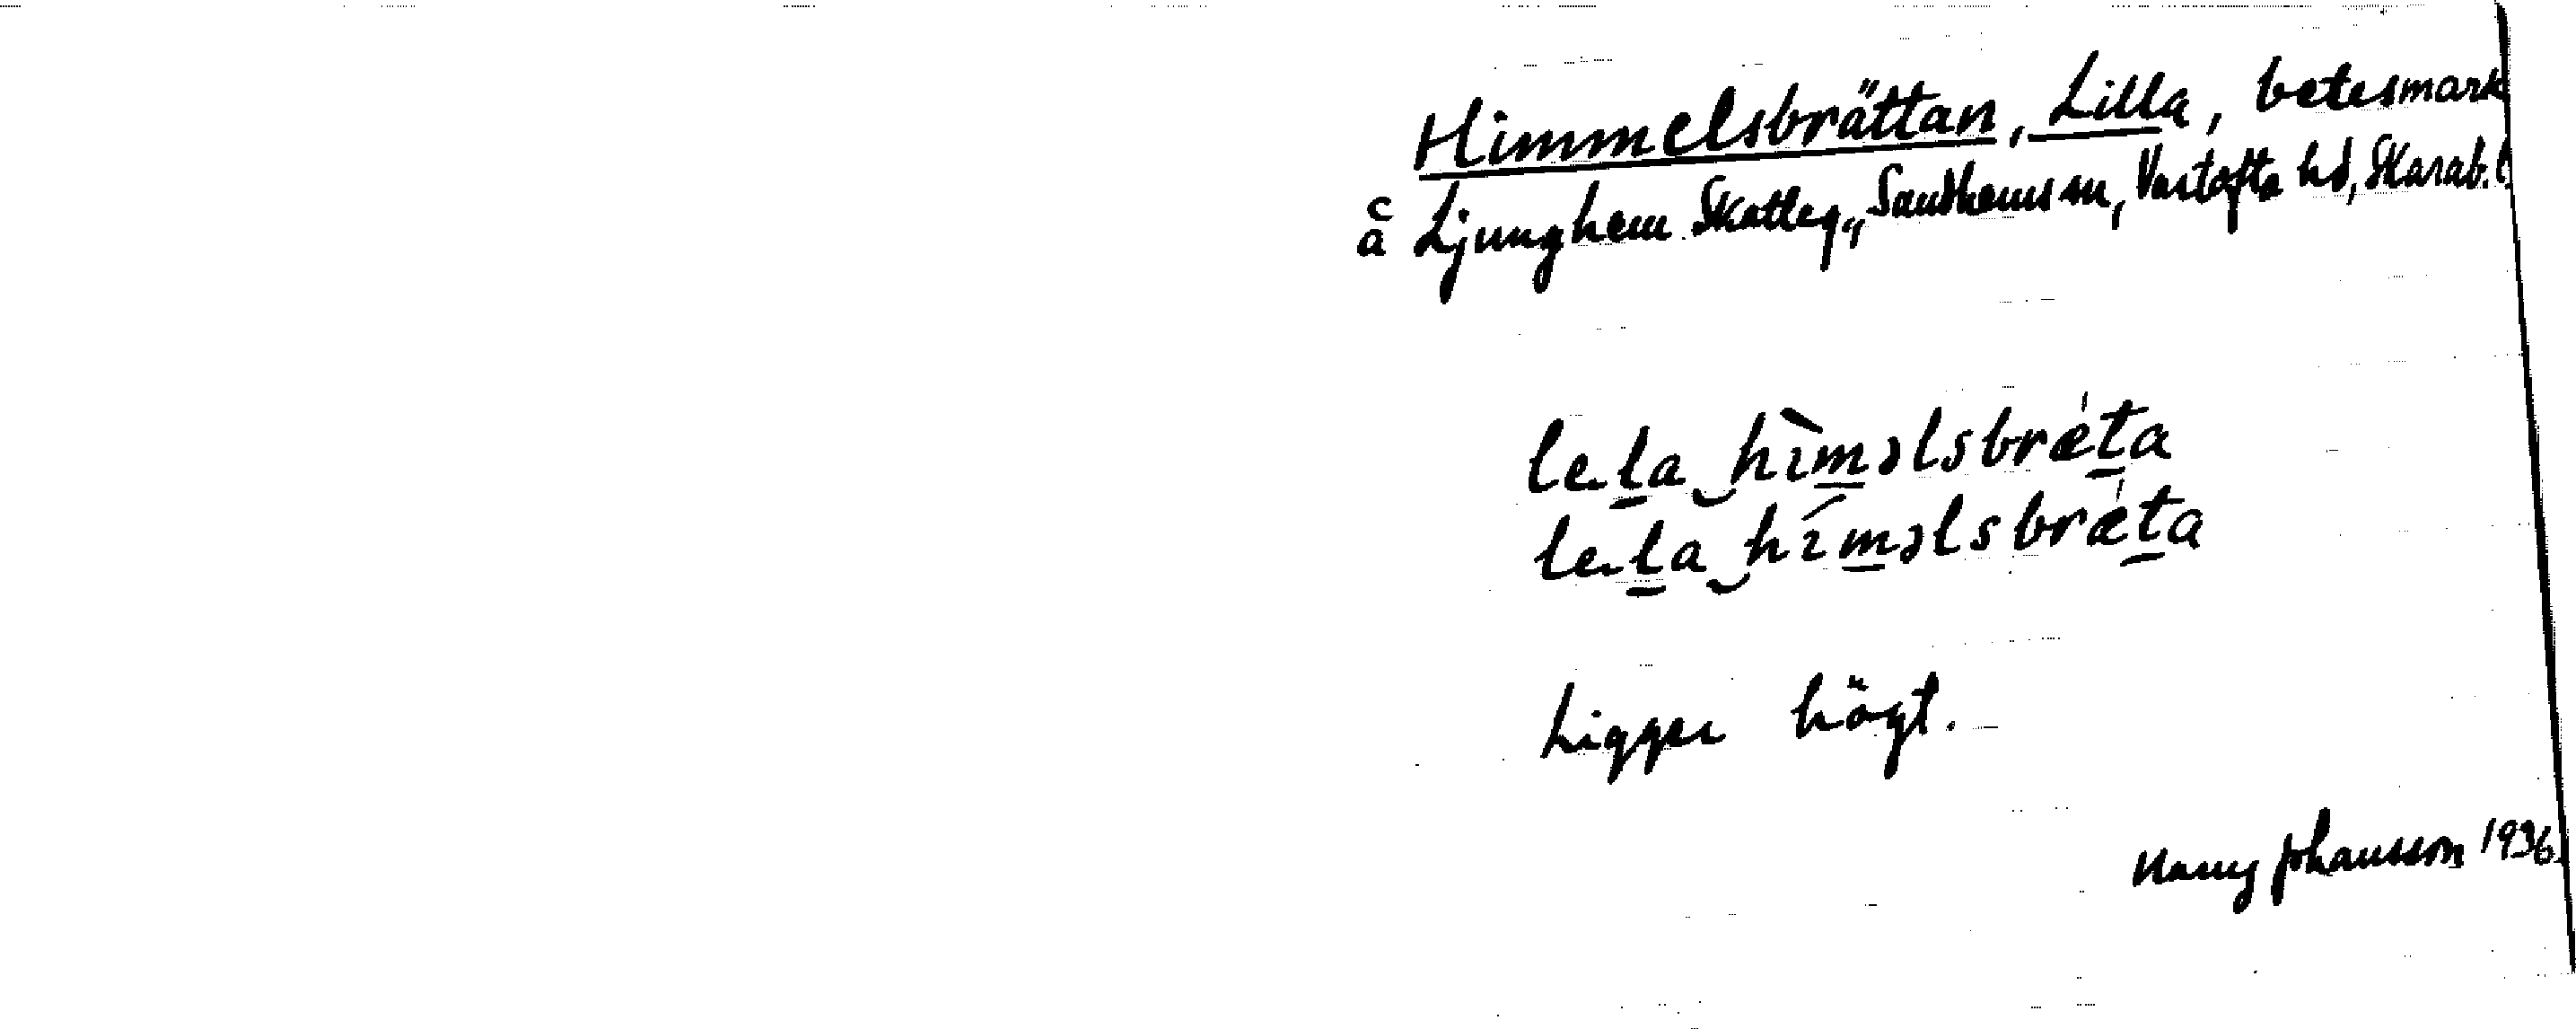 Himmelsbrättan, Lilla, betesmark
å Ljunghem Skatteg., Sandhems sn, Vartofta hd, Skarab. l.
le.l̲a‿hı̀m̲əlsbræ̍t̲a
le.l̲a‿hı́m̲əlsbræ̍t̲a
Ligger högt.
Nanny Johansson 1936.